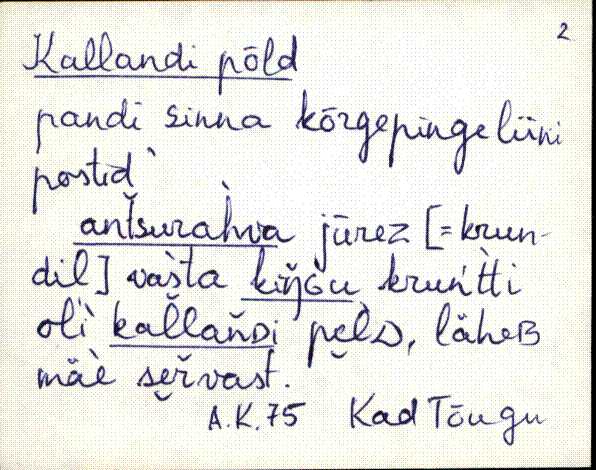 2
Kallandi põld
pandi sinna kõrgepingeliini
postid
an̆t̆surah̀va jūrez [=krun-
dil] vas̀ta kiŋ̆ɢu krun̆t̀ti
olì kal̆lan̆ᴅi pe̮lᴅ, läheʙ
mäè se̮r̆vast.
A.K. 75 Kad Tõugu